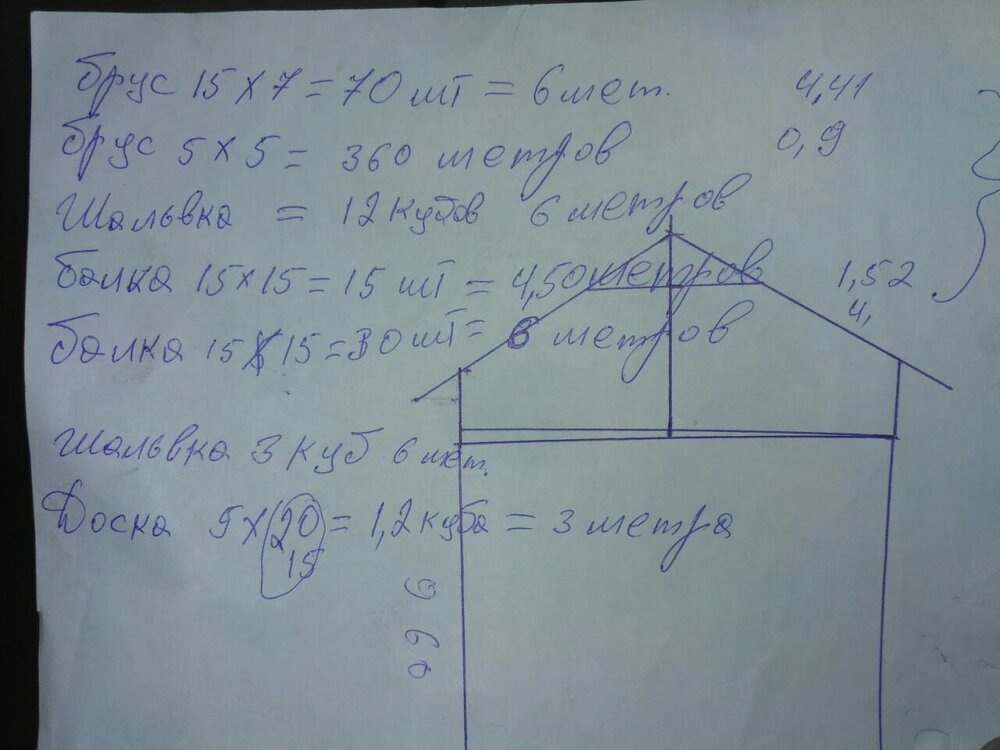 брус 15 х 7 = 70 шт = 6 мет. 4,41
брус 5 х 5 = 360 метров 0,9
Шальвка = 12 кубов 6 метров
балка 15 х 15 = 15 шт = 4,50 метров 1,52
4,
балка 15 х 15 = 30 шт = 6 метров
Шальвка 3 куб 6 мет.
Доска 5 х 20 = 1,2 куба = 3 метра
15